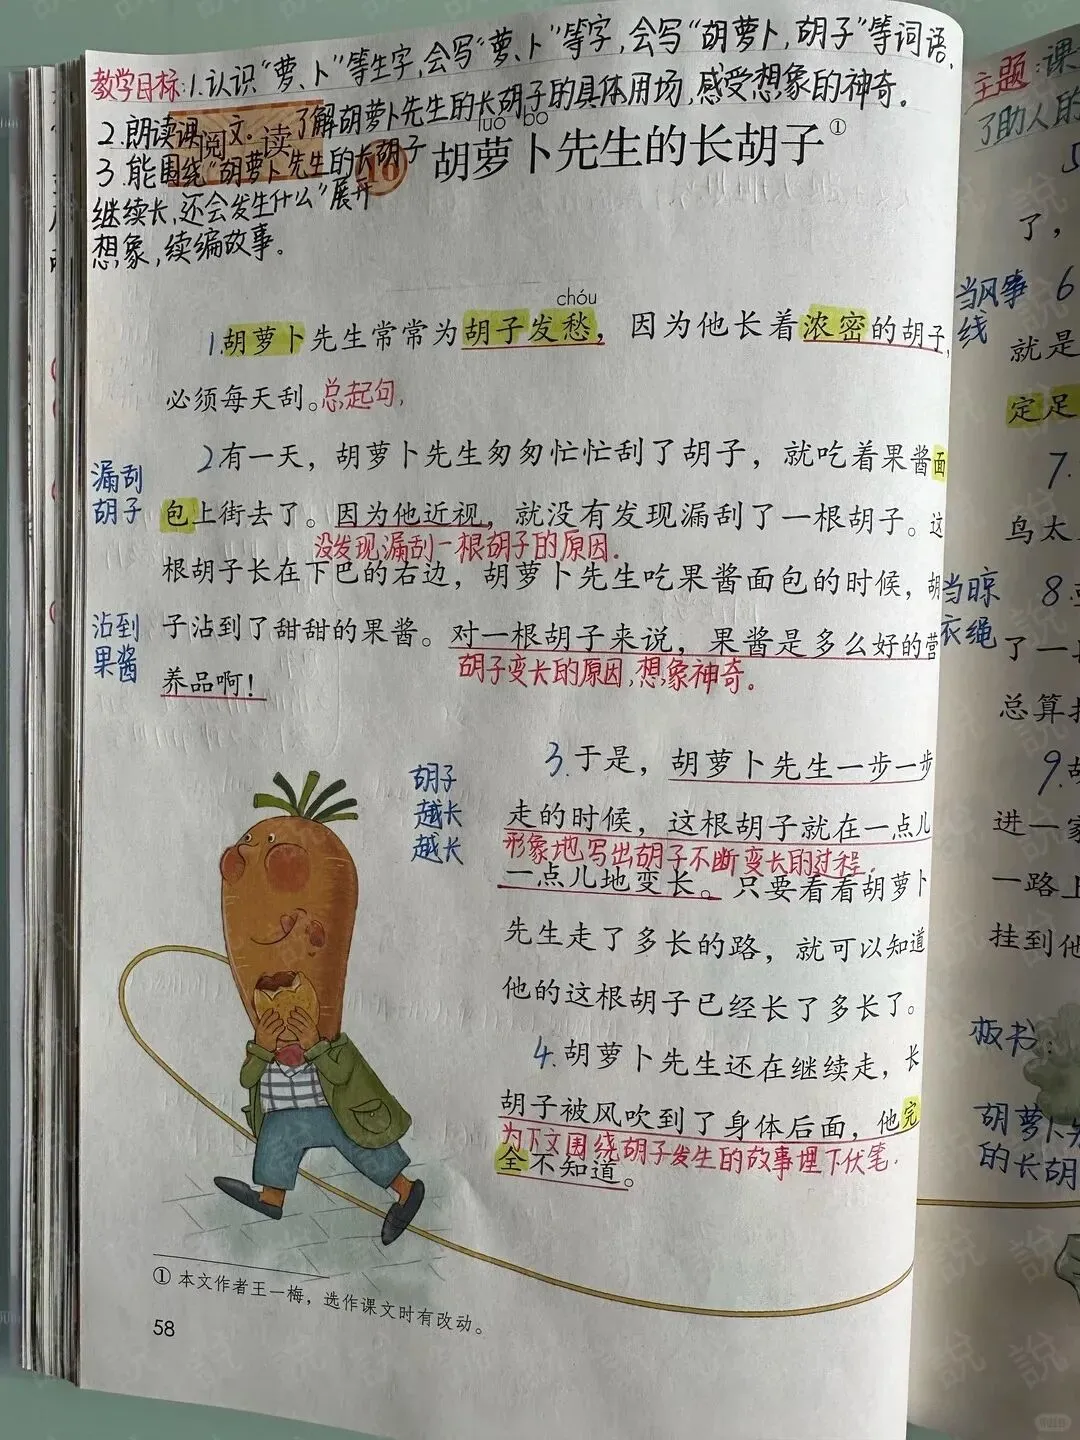 教学目标:1.认识“萝、卜”等生字,会写“萝、卜”等字,会写“胡萝卜,胡子”等词语,
2.朗读课文。了解胡萝卜先生的长胡子的具体用场,感受想象的神奇。
3.能围绕“胡萝卜先生的长胡子
继续长,还会发生什么”展开
想象,续编故事。
阅读
10
luó bo
胡萝卜先生的长胡子①
chóu
1.胡萝卜先生常常为胡子发愁,因为他长着浓密的胡子,
必须每天刮。总起句,
2有一天,胡萝卜先生匆匆忙忙刮了胡子,就吃着果酱面
漏刮
胡子
包上街去了。因为他近视,就没有发现漏刮了一根胡子。这
没发现漏刮一根胡子的原因.
根胡子长在下巴的右边,胡萝卜先生吃果酱面包的时候,胡
沾到
果酱
子沾到了甜甜的果酱。对一根胡子来说,果酱是多么好的营
胡子变长的原因,想象神奇。
养品啊!
3.于是,胡萝卜先生一步一步
胡子
越长
越长
走的时候,这根胡子就在一点儿
形象地写出胡子不断变长的过程.
一点儿地变长。只要看看胡萝卜
先生走了多长的路,就可以知道
他的这根胡子已经长了多长了。
4.胡萝卜先生还在继续走,长
胡子被风吹到了身体后面,他完
为下文围绕胡子发生的故事埋下伏笔.
全不知道。
①本文作者王一梅,选作课文时有改动。
58
主题:课
了助人的
了,
当风筝
线
6
就是
定足
7.
鸟太
当晾
衣绳
8.
了一
总算
9.
进一家
一路上
挂到他
板书:
胡萝卜先
的长胡